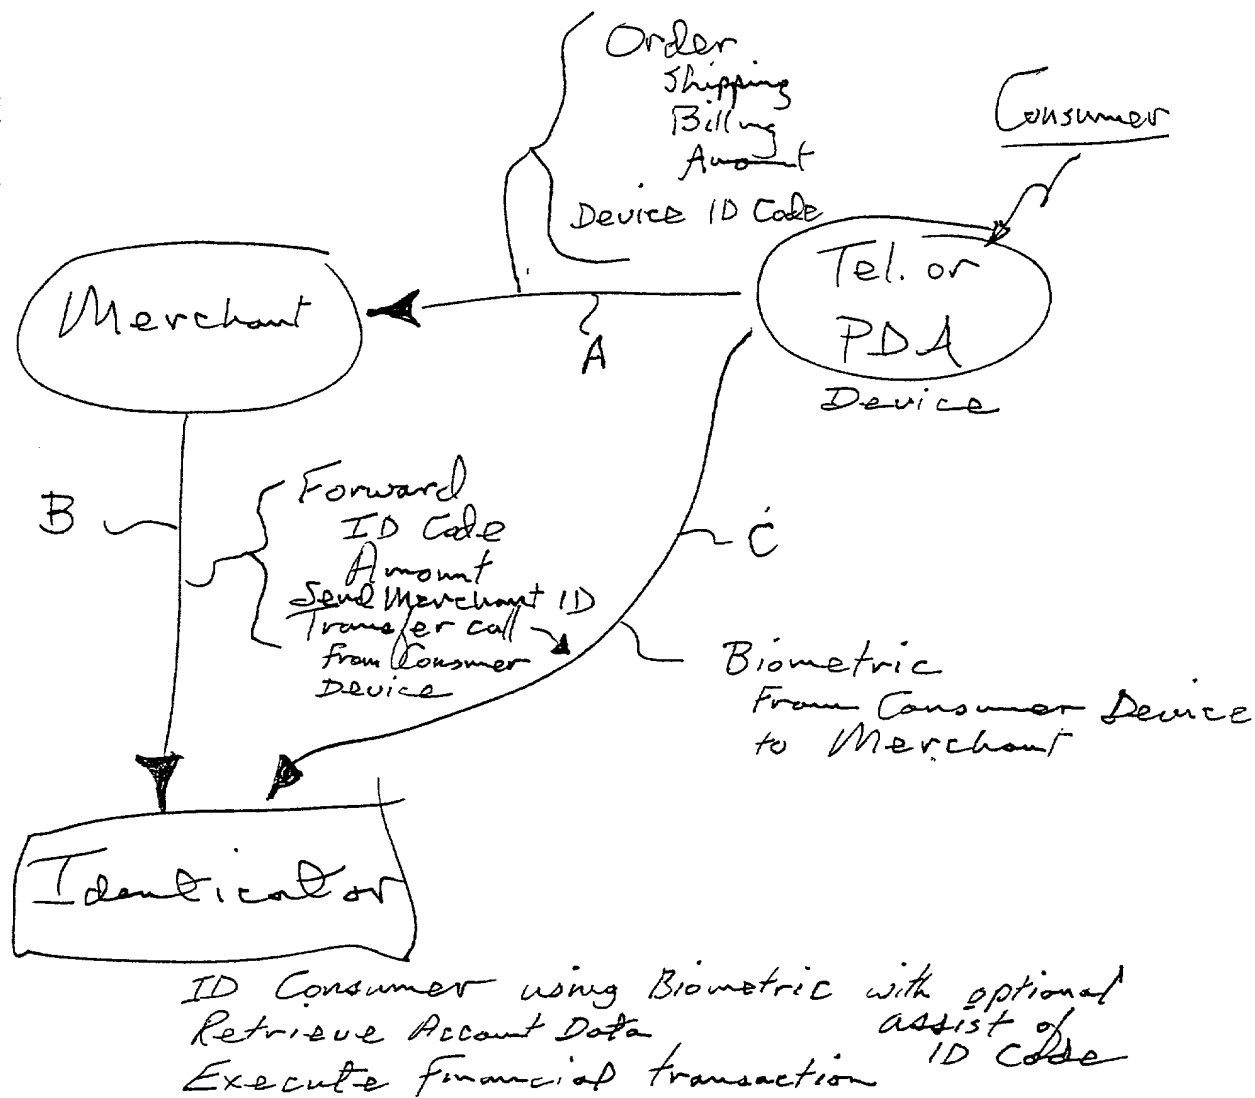 Order
Shipping
Billing
Amount
Device ID Code
Consumer
Tel. or
PDA
Device
Merchant
A
B
Forward
ID Code
Amount
Send Merchant ID
Transfer call
from Consumer
Device
C
Biometric
From Consumer Device
to Merchant
Identicator
ID Consumer using Biometric with optional
assist of
ID Code
Retrieve Account Data
Execute Financial transaction